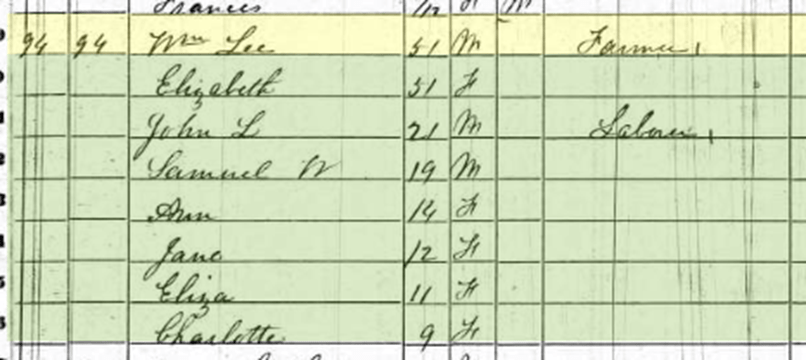 Frances M
94 94 Wm Lee 51 M Farmer
Elizabeth 51 F
John L 21 M Laborer
Samuel W 19 M
Ann 14 F
Jane 12 F
Eliza 11 F
Charlotte 9 F